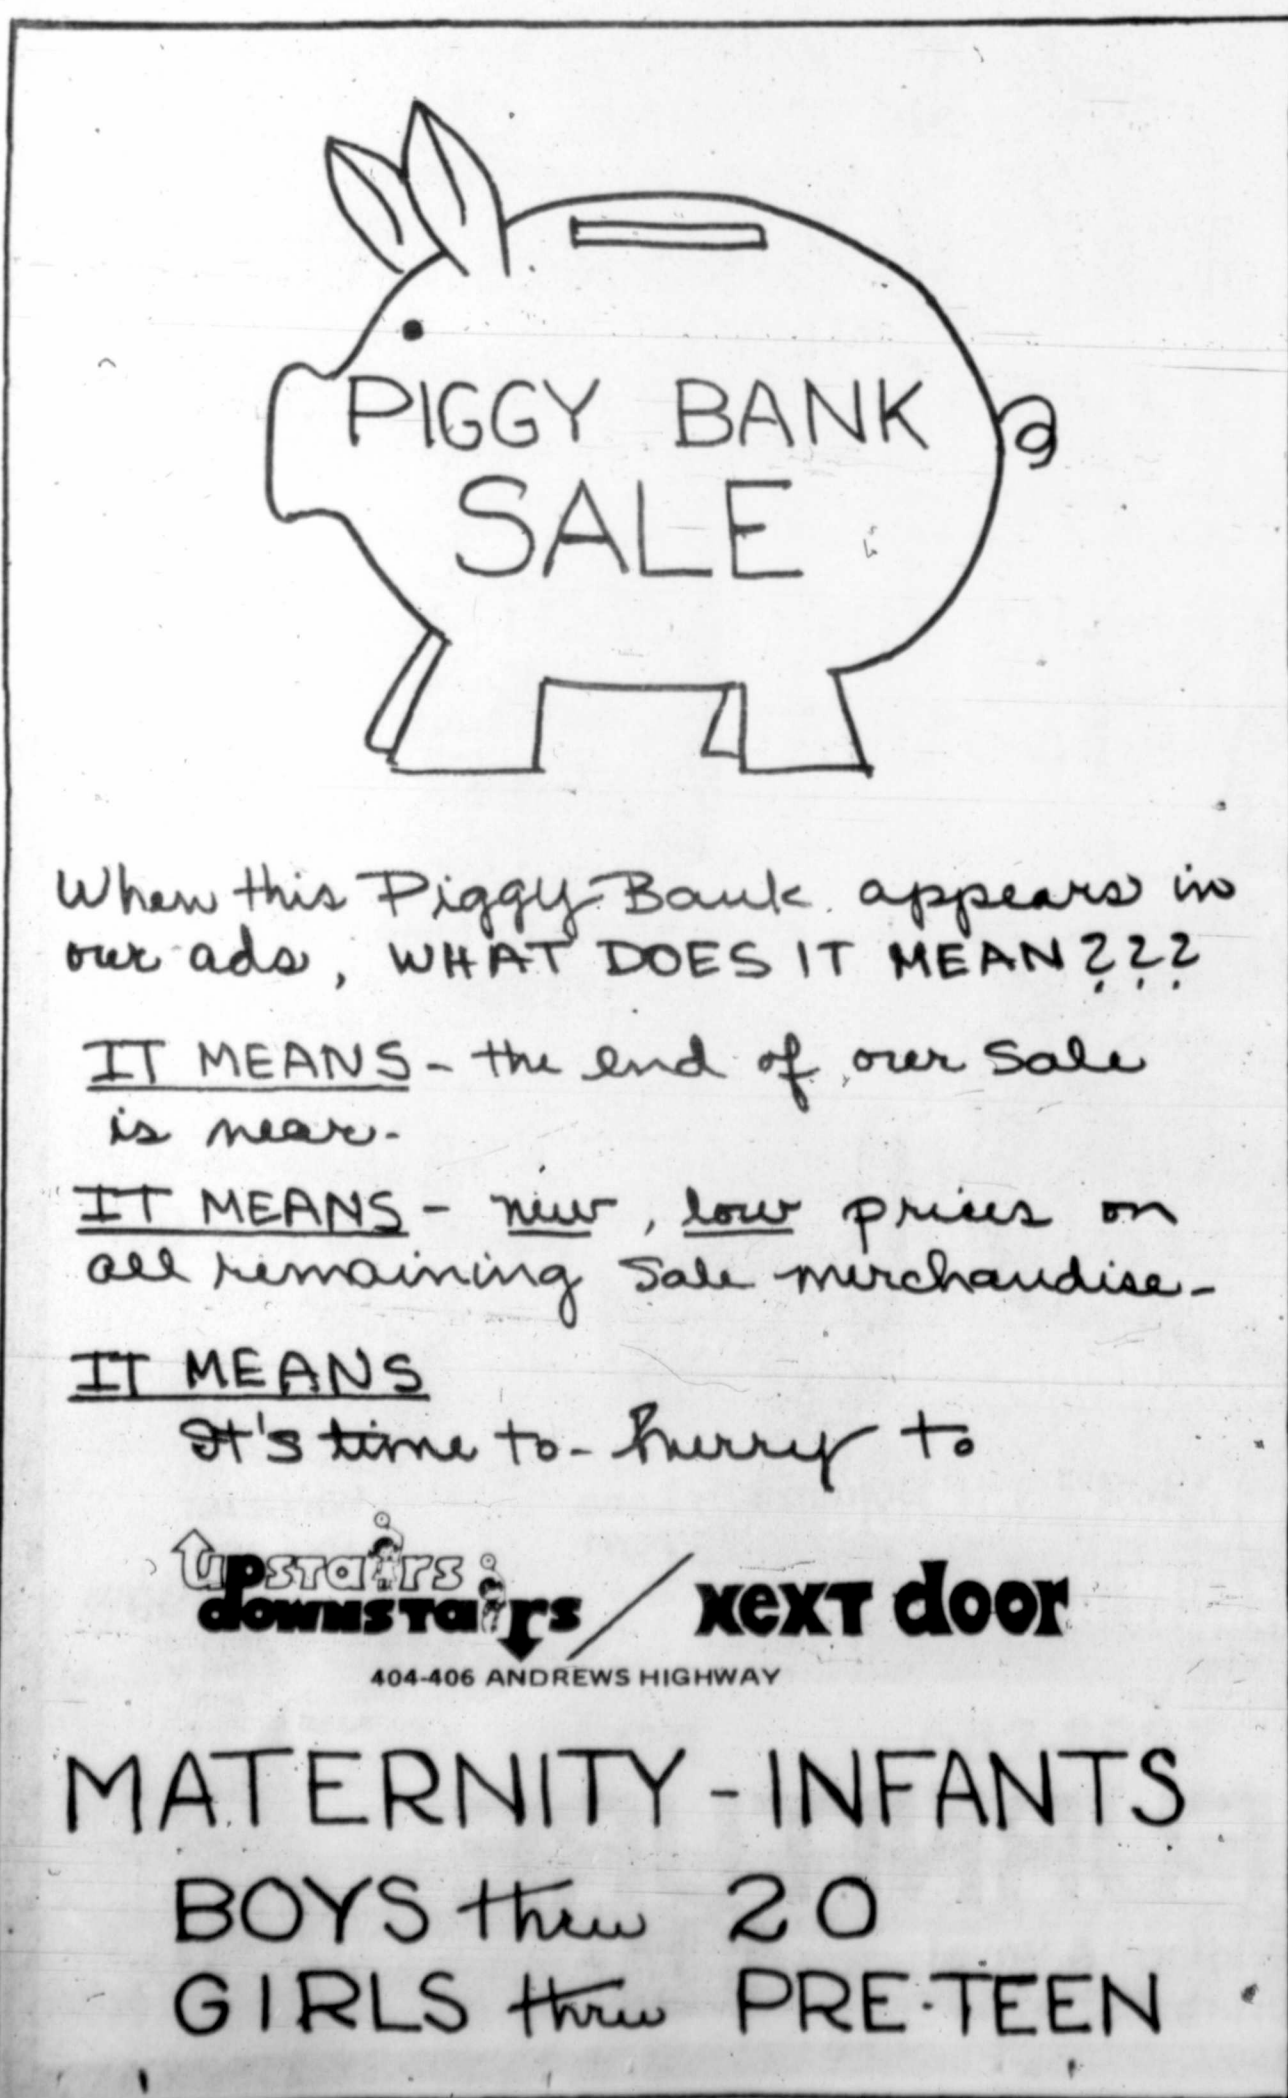 PIGGY BANK
SALE
When this Piggy Bank appears in
our ads, WHAT DOES IT MEAN???
IT MEANS - the end of our Sale
is near-
IT MEANS - new, low prices on
all remaining Sale merchandise-
IT MEANS
It's time to - hurry to
upstairs
downstairs / NEXT door
404-406 ANDREWS HIGHWAY
MATERNITY - INFANTS
BOYS thru 20
GIRLS thru PRE-TEEN